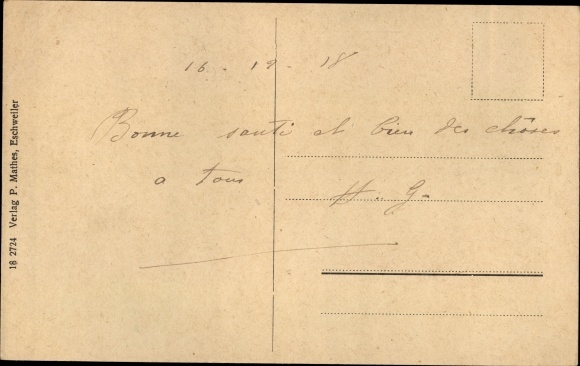 16 - 12 - 18
Bonne santé et bien des chôses
a tous
H. G-
18 2724 Verlag P. Mathes, Eschweiler